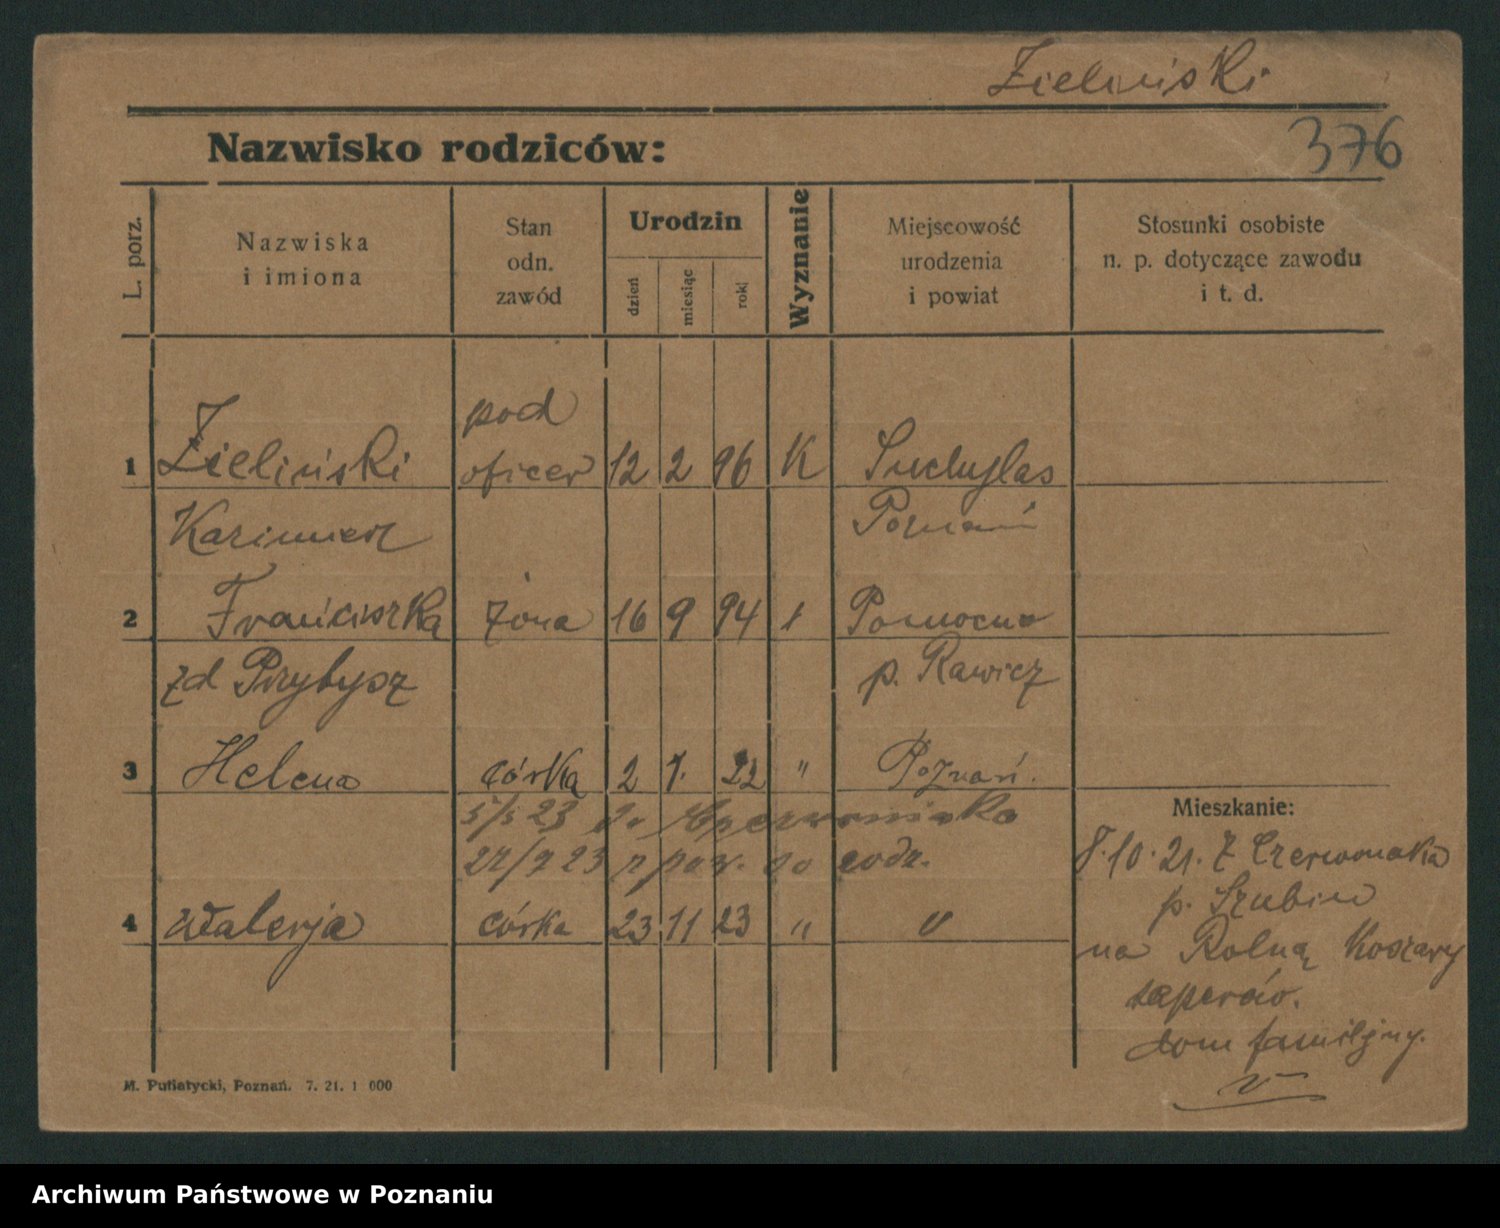 Zieliński
376
Nazwisko rodziców:
L. porz.
Nazwiska
i imiona
Stan
odn.
zawód
Urodzin
dzień
miesiąc
rok
Wyznanie
Miejscowość
urodzenia
i powiat
Stosunki osobiste
n. p. dotyczące zawodu
i t. d.
pod
1 Zieliński oficer 12 2 96 K Suchylas
Kazimierz Poznań
2 Franciszka żona 16 9 94 Pomocno
zd Przybysz p. Rawicz
3 Helena córka 2 7. 22 " Poznań.
5/5 23 do
27/7 23 z pow. do codz.
4 Walerja córka 23 11 23 " "
Mieszkanie:
8.10.21. Z
p. Szubin
na Rolną Koszary
saperów.
dom familijny.
M. Putiatycki, Poznań. 7. 21. 1 000
Archiwum Państwowe w Poznaniu